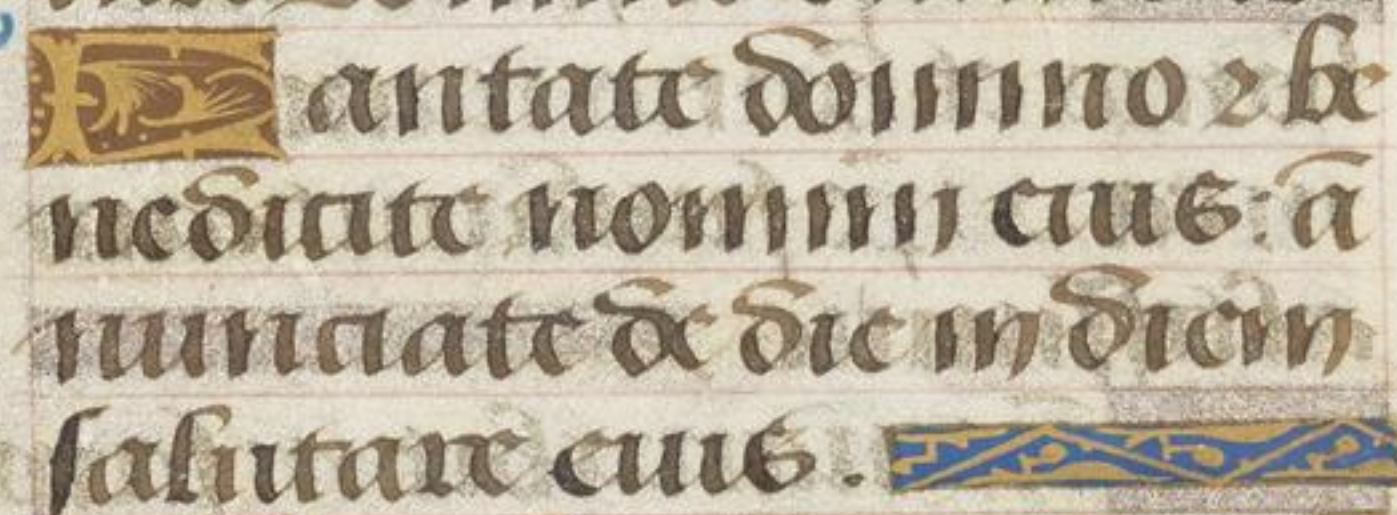 Cantate domino ⁊ be
nedicite nomini eius: ā
nunciate de die in diem
salutare eius.